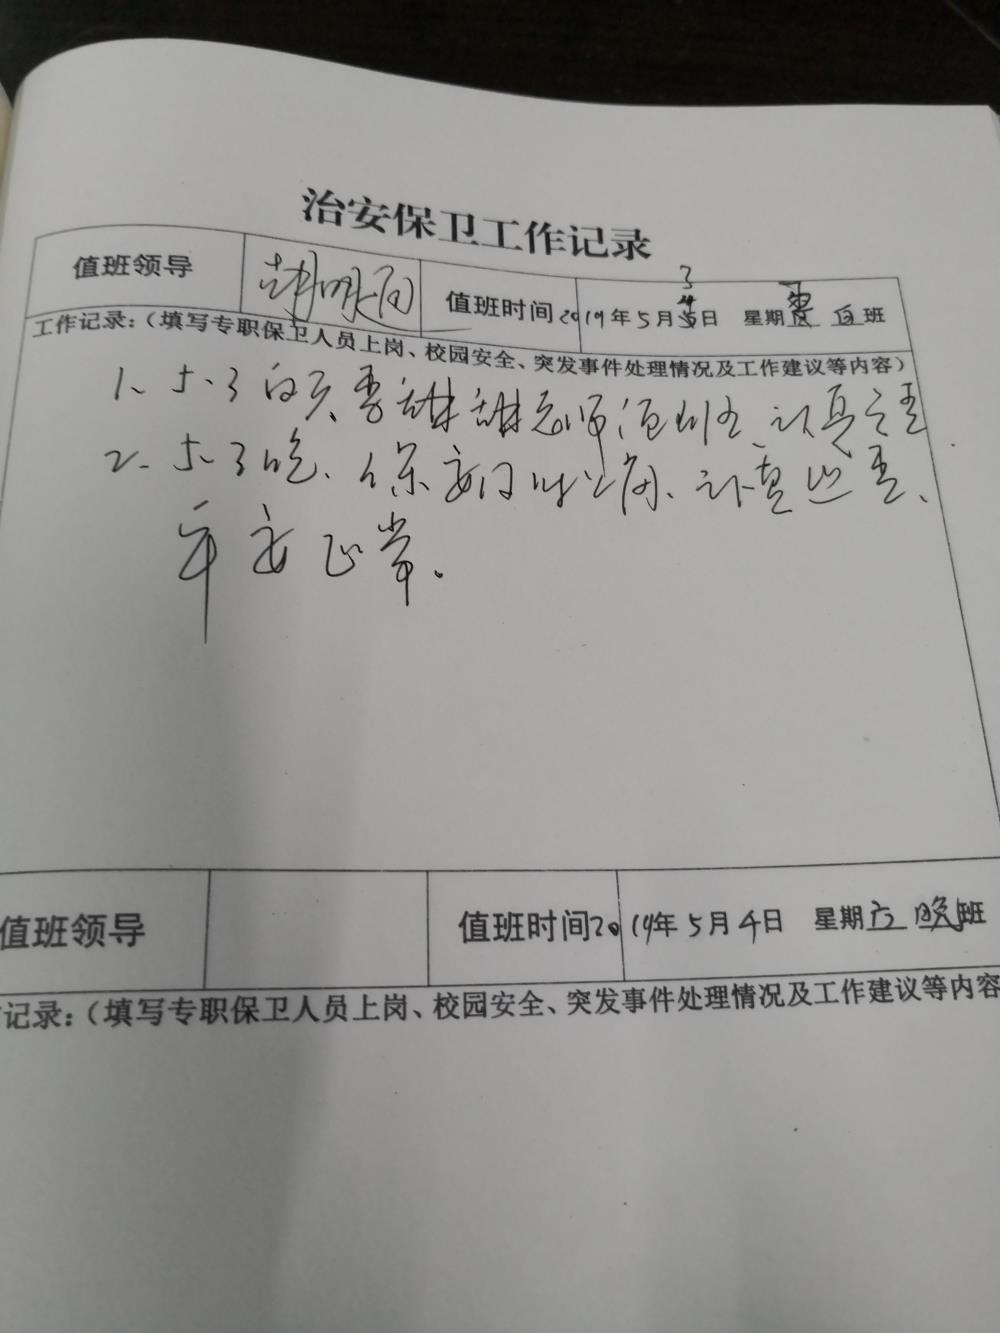 治安保卫工作记录
值班领导 赵明 值班时间2019年5月3日 星期 白班
工作记录：（填写专职保卫人员上岗、校园安全、突发事件处理情况及工作建议等内容）
1、5.3白天、李甜甜老师值班、认真
2、5.3晚、保安 上岗、认真巡查、
平安正常。
值班领导 值班时间2019年5月4日 星期六 晚班
记录：（填写专职保卫人员上岗、校园安全、突发事件处理情况及工作建议等内容